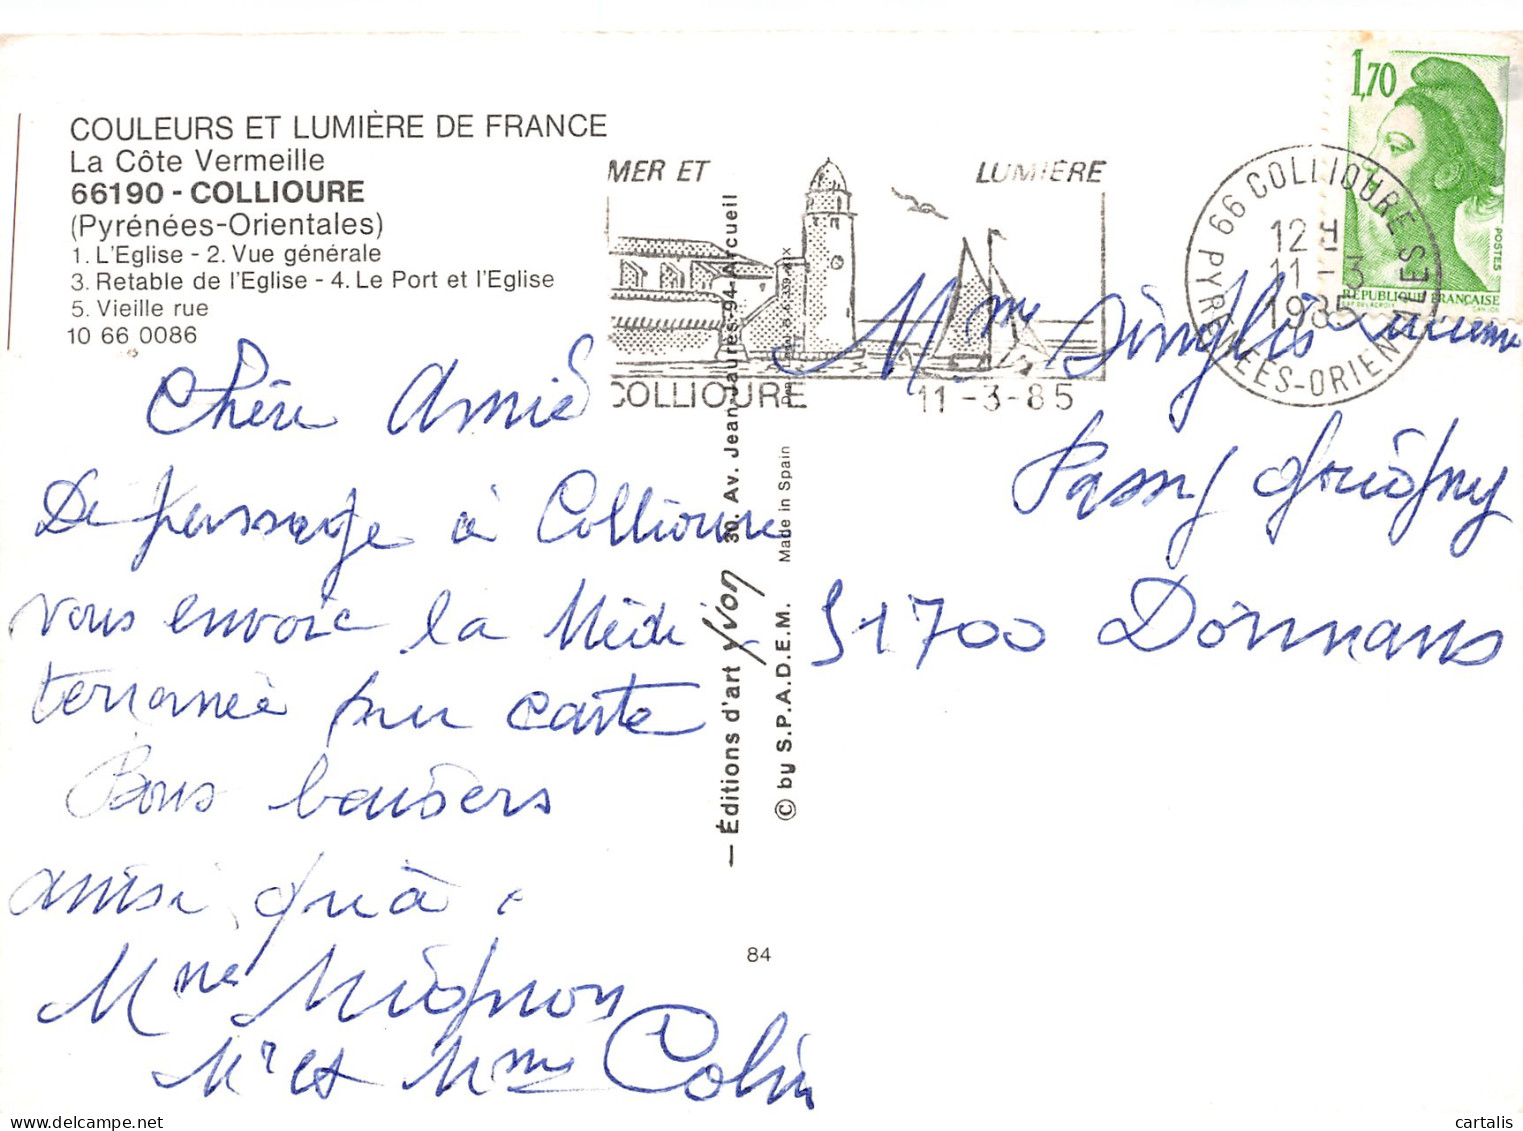 COULEURS ET LUMIÈRE DE FRANCE
La Côte Vermeille
66190 - COLLIOURE
(Pyrénées-Orientales)
1. L'Eglise - 2. Vue générale
3. Retable de l'Eglise - 4. Le Port et l'Eglise
5. Vieille rue
10 66 0086
MER ET LUMIÈRE
COLLIOURE 11-3-85
66 COLLIOURE
12 H
11-3
1985
PYRENEES-ORIENTALES
1,70
POSTES
RÉPUBLIQUE FRANÇAISE
Chère Amie
De passage à Collioure
vous envoie la Médi
terranée sur carte
Bons baisers
ainsi qu'à
Mme Mignon
Mr et Mme Colin
— Éditions d'art yvon 30, Av. Jean-Jaurès-94-Arcueil
© by S.P.A.D.E.M. Made in Spain
84
Mme
Passy Grigny
51700 Dormans
cartalis